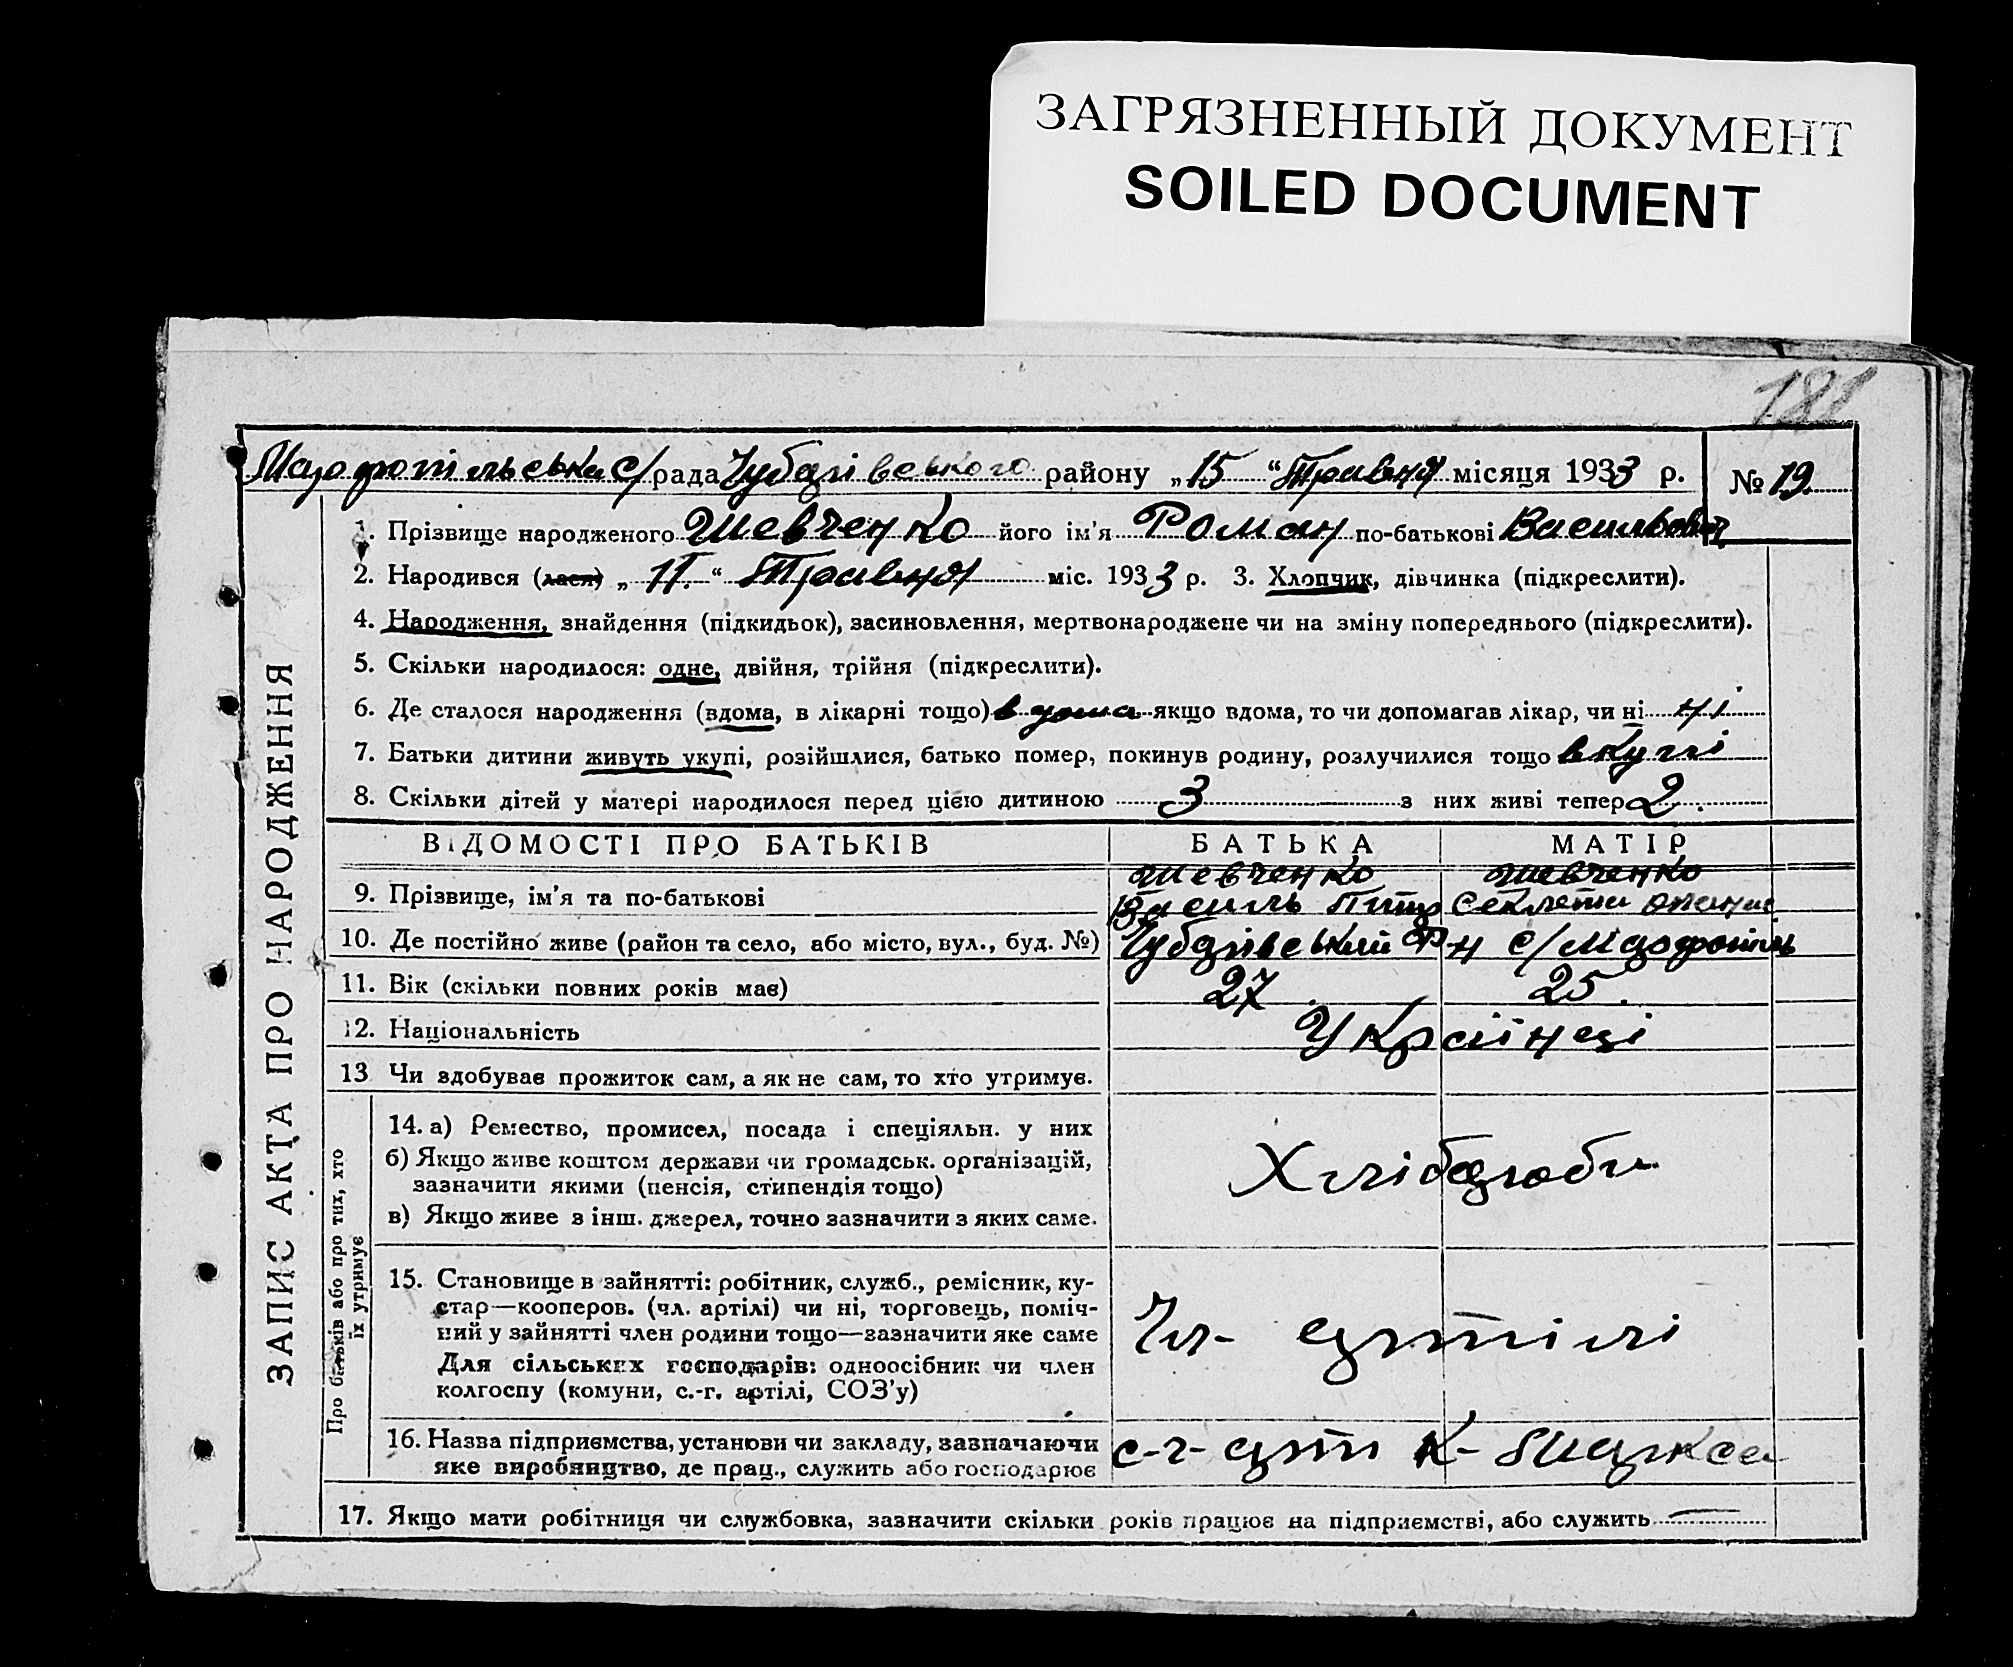 ЗАГРЯЗНЕННЫЙ ДОКУМЕНТ
SOILED DOCUMENT
181
Мазофопільська с/рада Чубарівського району „15“ Травня місяця 1933 р. № 19.
ЗАПИС АКТА ПРО НАРОДЖЕННЯ
1. Прізвище народженого Шевченко його ім'я Роман по-батькові Васильович
2. Народився (лася) „11.“ Травня міс. 1933 р. 3. Хлопчик, дівчинка (підкреслити).
4. Народження, знайдення (підкидьок), засиновлення, мертвонароджене чи на зміну попереднього (підкреслити).
5. Скільки народилося: одне, двійня, трійня (підкреслити).
6. Де сталося народження (вдома, в лікарні тощо) вдома якщо вдома, то чи допомагав лікар, чи ні ні
7. Батьки дитини живуть укупі, розійшлися, батько помер, покинув родину, розлучилися тощо вкупі
8. Скільки дітей у матері народилося перед цією дитиною 3 з них живі тепер 2.
ВІДОМОСТІ ПРО БАТЬКІВ БАТЬКА МАТІР
9. Прізвище, ім'я та по-батькові Шевченко Василь Петр Шевченко Секлета Опанас
10. Де постійно живе (район та село, або місто, вул., буд. №) Чубарівський Р-н с/Мазофопіль
11. Вік (скільки повних років має) 27 25.
12. Національність Українці
13 Чи здобуває прожиток сам, а як не сам, то хто утримує.
Про батьків або про тих, хто їх утримує
14. а) Ремество, промисел, посада і спеціяльн. у них Хлібароби
б) Якщо живе коштом держави чи громадськ. організацій,
зазначити якими (пенсія, стипендія тощо)
в) Якщо живе з інш. джерел, точно зазначити з яких саме.
15. Становище в зайнятті: робітник, служб., ремісник, ку-
стар—кооперов. (чл. артілі) чи ні, торговець, поміч-
ний у зайнятті член родини тощо—зазначити яке саме Чл- артілі
Для сільських господарів: одноосібник чи член
колгоспу (комуни, с.-г. артілі, СОЗ'у)
16. Назва підприємства, установи чи закладу, зазначаючи с-г- арт К- Маркса
яке виробництво, де прац., служить або господарює
17. Якщо мати робітниця чи службовка, зазначити скільки років працює на підприємстві, або служить —